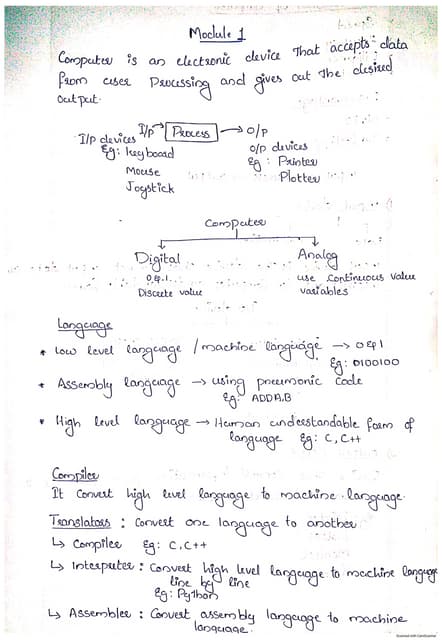 Module 1
Computer is an electronic device that accepts data
from user Processing and gives out the desired
output.
I/p → Process → O/P
I/p devices
Eg: keyboard
Mouse
Joystick
O/p devices
Eg: Printer
Plotter
Computer
Digital
0 & 1
Discrete value
Analog
use continuous value
variables
Language
* Low level language / machine language → 0 & 1
Eg: 0100100
* Assembly language → using pneumonic code
Eg: ADDA,B
* High level language → Human understandable form of
language Eg: C, C++
Compiler
It Convert high level language to machine language.
Translators : Convert one language to another
↳ Compiler Eg: C, C++
↳ Interpreter : Convert high level language to machine language
line by line
Eg: Python
↳ Assembler : Convert assembly language to machine
language.
Scanned with CamScanner